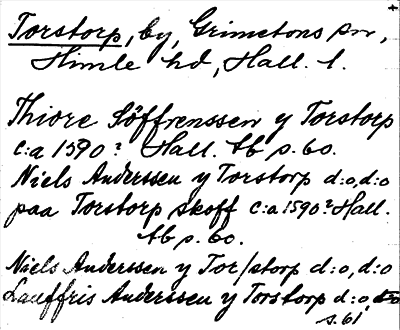 Torstorp, by, Grimetons sn,
Himle hd, Hall. l.
Thiore Söffrenssen y Torstorp
c:a 1590? Hall. tb s. 60.
Niels Anderssen y Torstorp d:o, d:o
paa Torstorp skoff c:a 1590? Hall.
tb s. 60.
Niels Anderssen y Tor/storp d:o, d:o
Lauffris Anderssen y Torstorp d:o, d:o
s. 61